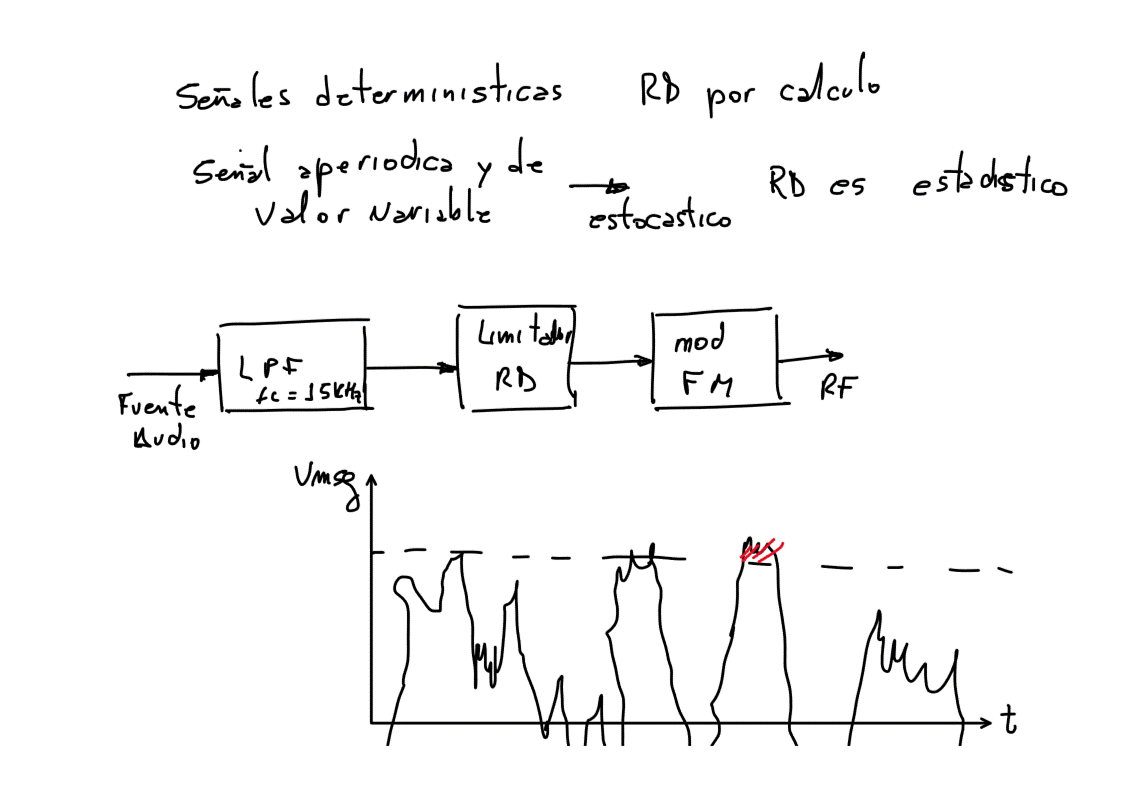 Señales deterministicas RD por calculo
Señal aperiodica y de
valor variable → estocastico RD es estadistico
LPF
fc = 15KHz
Limitador
RD
mod
FM
RF
Fuente
Audio
Vmsg
t